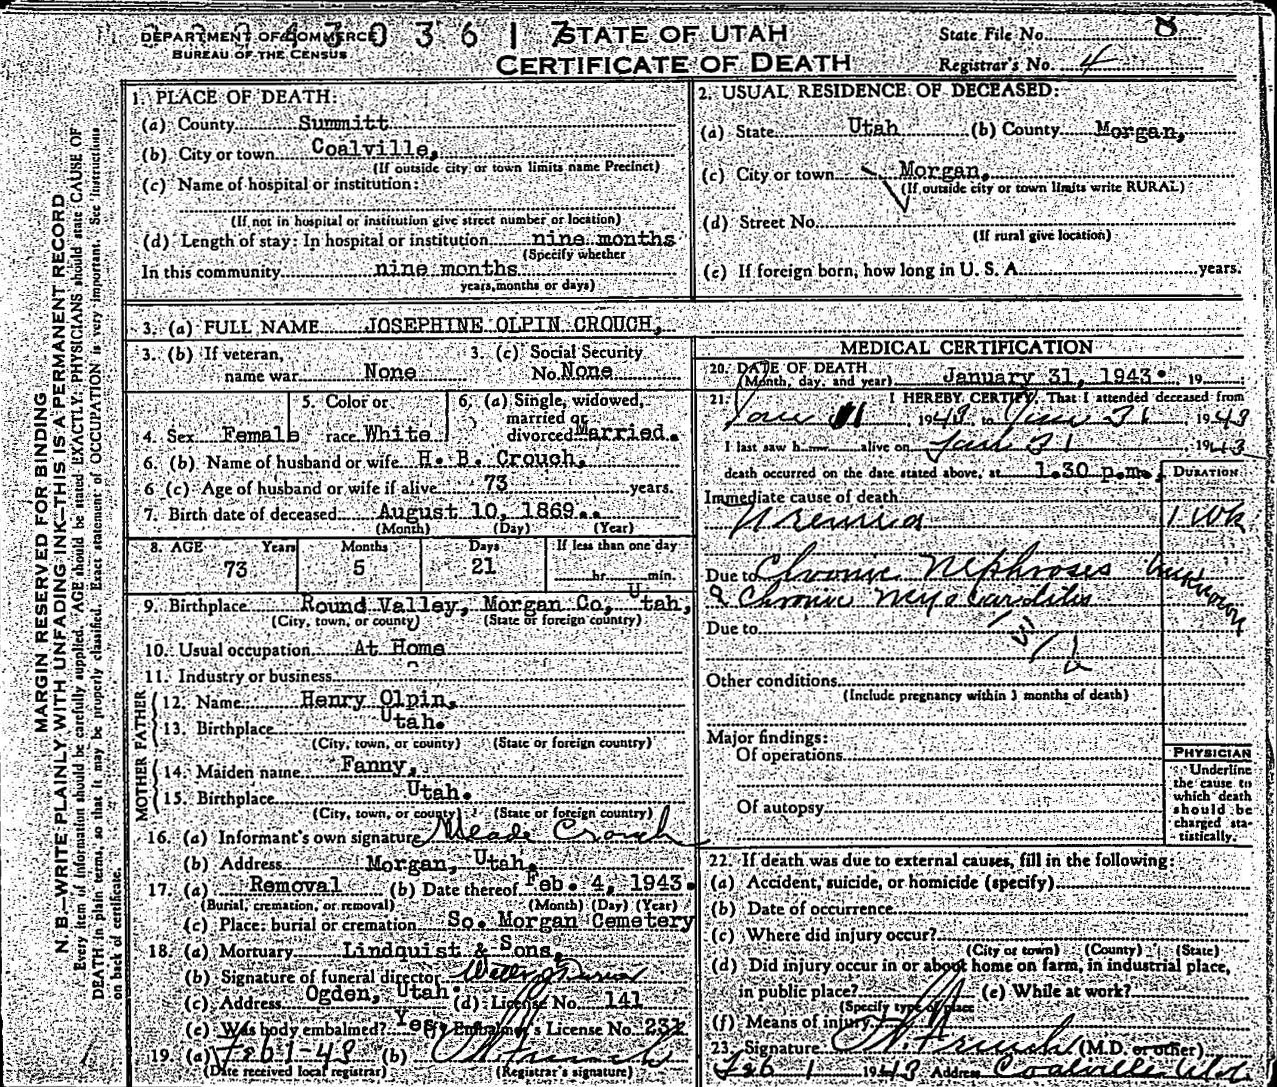 DEPARTMENT OF COMMERCE
BUREAU OF THE CENSUS
STATE OF UTAH
CERTIFICATE OF DEATH
State File No. 8
Registrar's No. 4
MARGIN RESERVED FOR BINDING
N. B.—WRITE PLAINLY, WITH UNFADING INK—THIS IS A PERMANENT RECORD
Every item of information should be carefully supplied. AGE should be stated EXACTLY. PHYSICIANS should state CAUSE OF
DEATH in plain terms, so that it may be properly classified. Exact statement of OCCUPATION is very important. See instructions
on back of certificate.
1. PLACE OF DEATH:
(a) County Summitt
(b) City or town Coalville,
(If outside city or town limits name Precinct)
(c) Name of hospital or institution:
(If not in hospital or institution give street number or location)
(d) Length of stay: In hospital or institution nine months
(Specify whether
In this community nine months
years, months or days)
2. USUAL RESIDENCE OF DECEASED:
(a) State Utah (b) County Morgan,
(c) City or town Morgan,
(If outside city or town limits write RURAL)
(d) Street No.
(If rural give location)
(e) If foreign born, how long in U. S. A. years.
3. (a) FULL NAME JOSEPHINE OLPIN CROUCH,
3. (b) If veteran,
name war None
3. (c) Social Security
No. None
4. Sex Female
5. Color or
race White
6. (a) Single, widowed,
married or
divorced Married.
6. (b) Name of husband or wife H. B. Crouch,
6 (c) Age of husband or wife if alive 73 years.
7. Birth date of deceased August 10, 1869..
(Month) (Day) (Year)
8. AGE Years Months Days If less than one day
73 5 21 hr. min.
9. Birthplace Round Valley, Morgan Co, Utah,
(City, town, or county) (State or foreign country)
10. Usual occupation At Home
11. Industry or business
FATHER
12. Name Henry Olpin,
13. Birthplace Utah.
(City, town, or county) (State or foreign country)
MOTHER
14. Maiden name Fanny,
15. Birthplace Utah.
(City, town, or county) (State or foreign country)
16. (a) Informant's own signature Meade Crouch
(b) Address Morgan, Utah.
17. (a) Removal (b) Date thereof Feb. 4, 1943.
(Burial, cremation, or removal) (Month) (Day) (Year)
(c) Place: burial or cremation So. Morgan Cemetery
18. (a) Mortuary Lindquist & Sons,
(b) Signature of funeral director
(c) Address Ogden, Utah. (d) License No. 141
(e) Was body embalmed? Yes. (f) Embalmer's License No. 231
19. (a) Feb 1-43 (b)
(Date received local registrar) (Registrar's signature)
MEDICAL CERTIFICATION
20. DATE OF DEATH
(Month, day, and year) January 31, 1943. 19
21. I HEREBY CERTIFY, That I attended deceased from
Jan 1943 to Jan 31, 1943
I last saw h alive on Jan 31 1943
death occurred on the date stated above, at 1.30 p.m.
DURATION
Immediate cause of death
Uremia 1 wk
Due to Chronic Nephroses unknown
& Chronic Myocarditis
Due to
Other conditions
(Include pregnancy within 3 months of death)
Major findings:
Of operations
Of autopsy
PHYSICIAN
Underline
the cause to
which death
should be
charged sta-
tistically.
22. If death was due to external causes, fill in the following:
(a) Accident, suicide, or homicide (specify)
(b) Date of occurrence
(c) Where did injury occur?
(City or town) (County) (State)
(d) Did injury occur in or about home on farm, in industrial place,
in public place? (e) While at work?
(Specify type of place
(f) Means of injury
23. Signature (M.D. or other)
Feb 1 1943 Address Coalville Utah